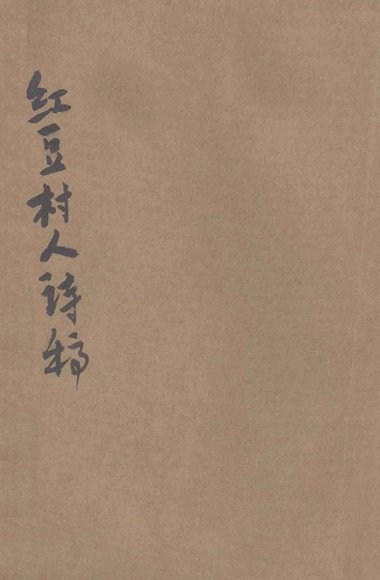 红豆村人詩稿